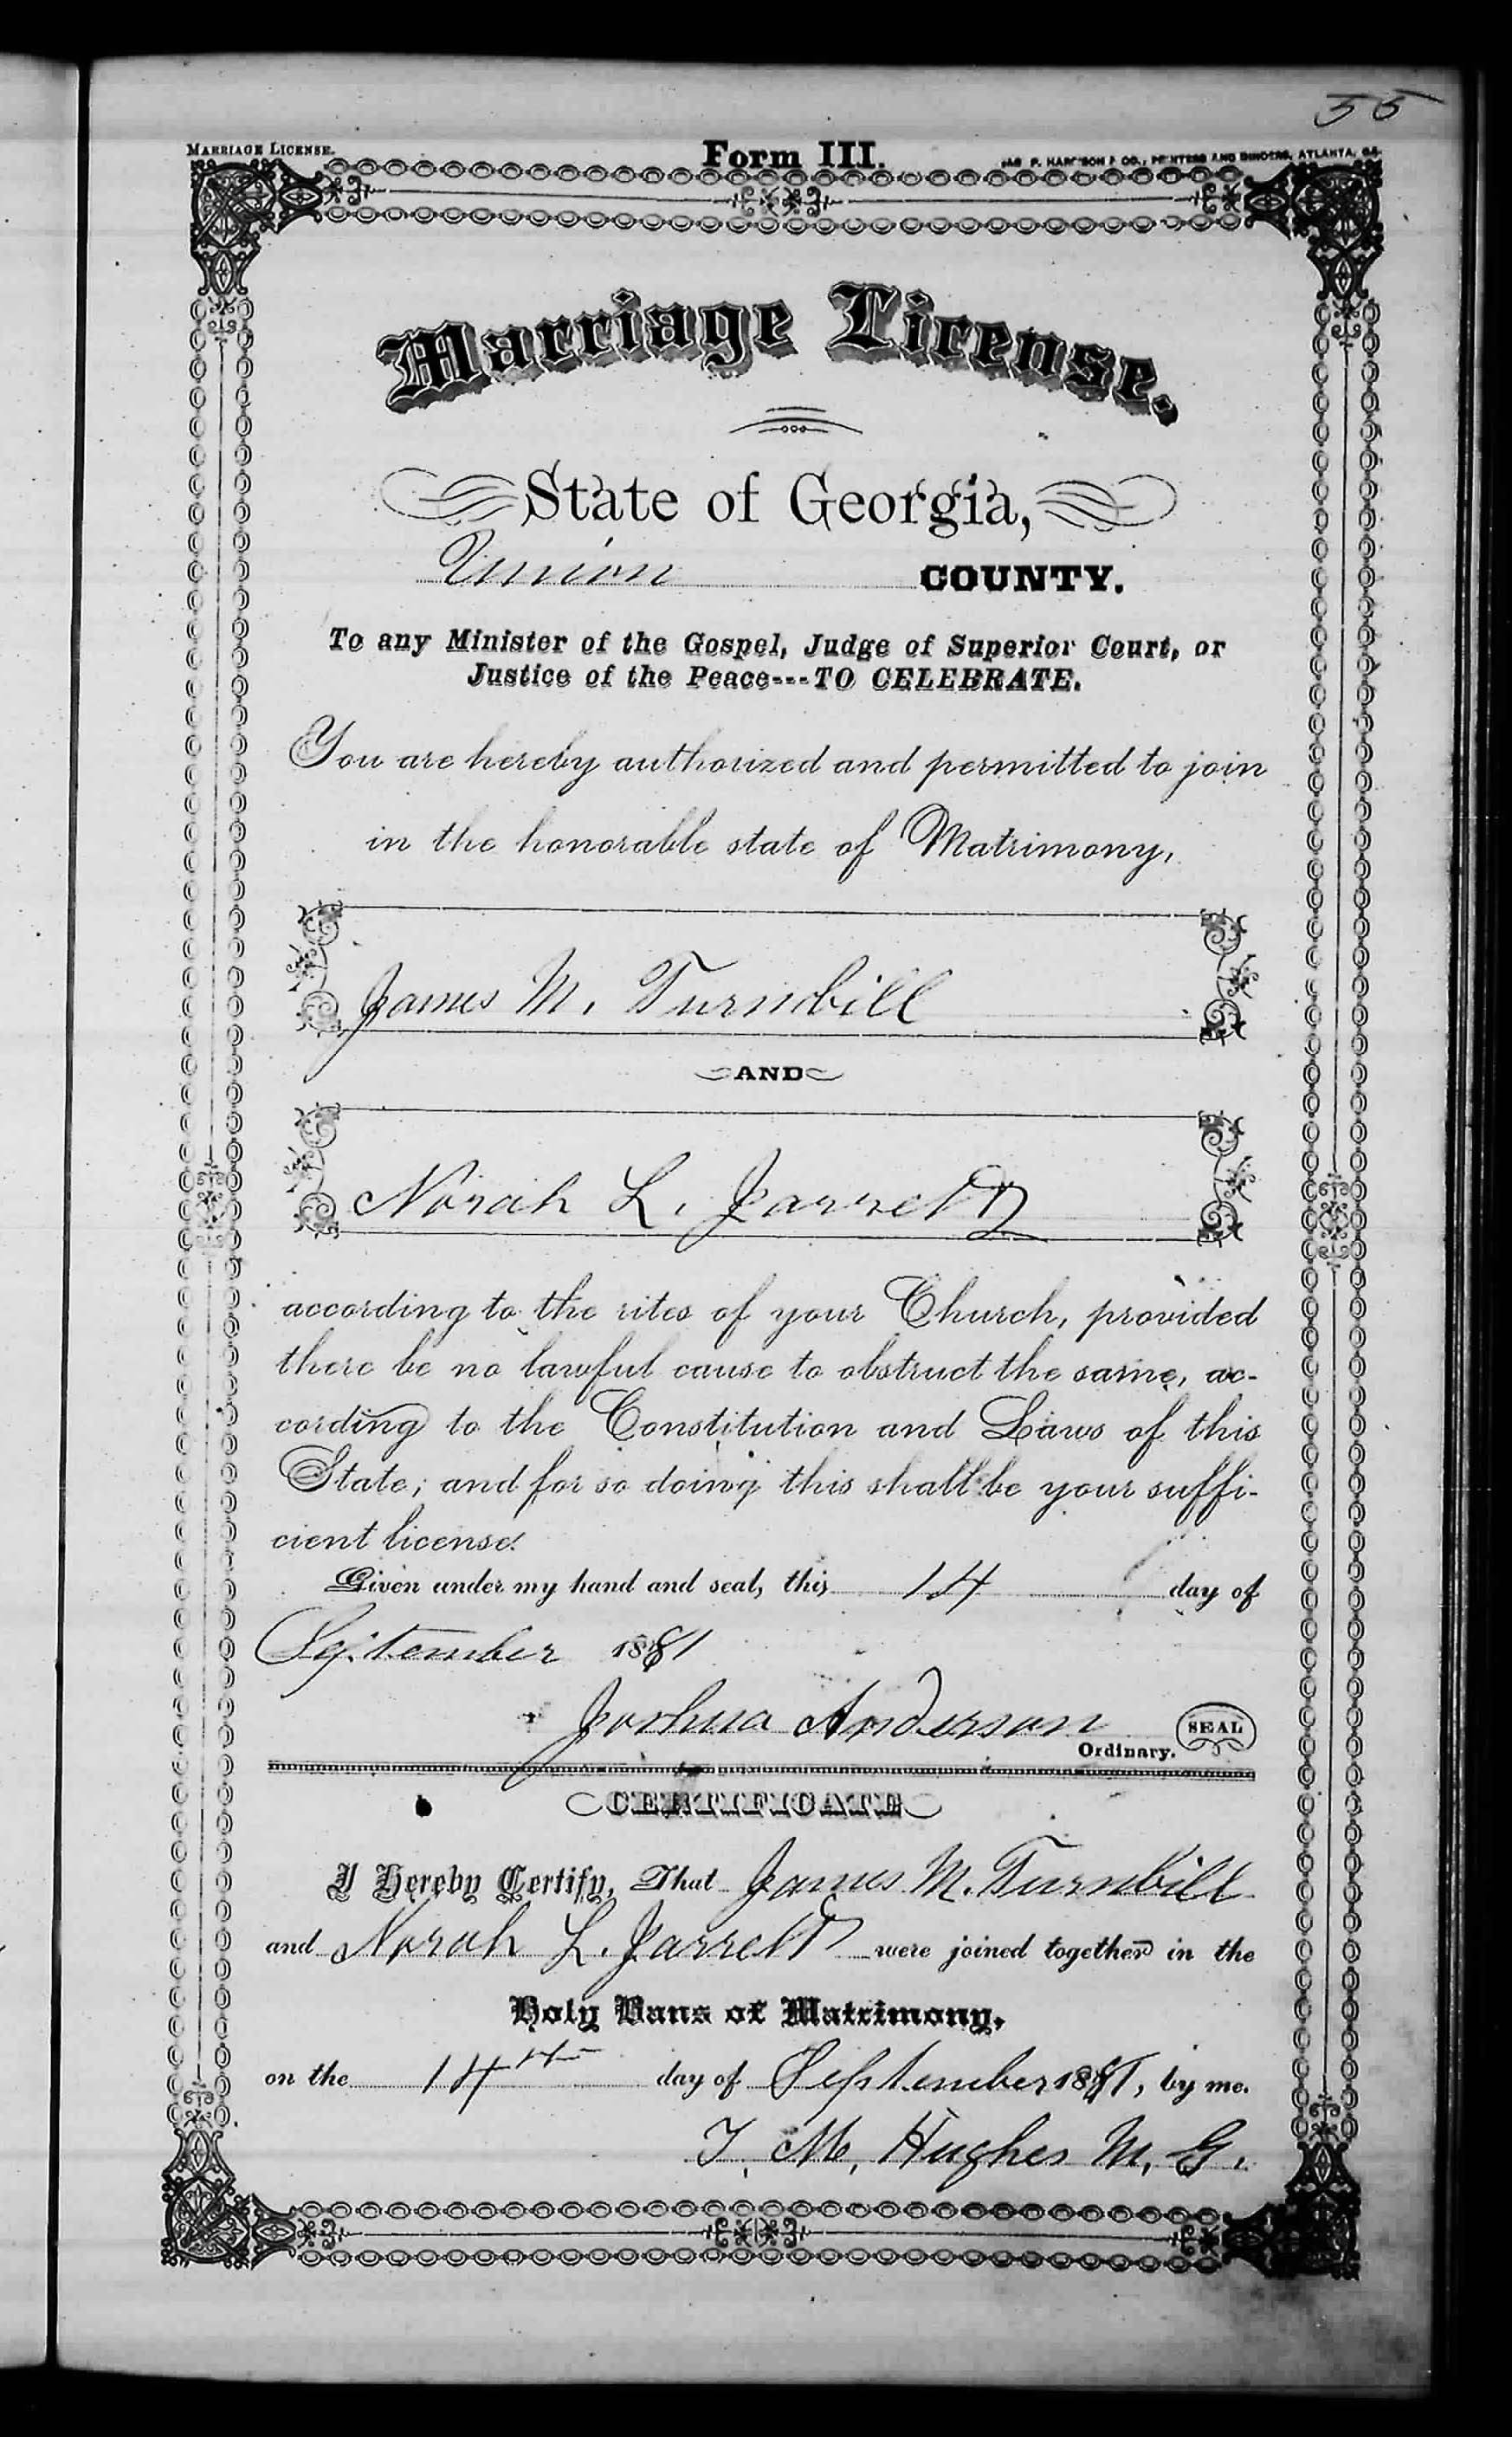 55
MARRIAGE LICENSE.
Form III.
JAS. P. HARRISON & CO., PRINTERS AND BINDERS, ATLANTA, GA.
Marriage License.
State of Georgia,
Union COUNTY.
To any Minister of the Gospel, Judge of Superior Court, or
Justice of the Peace---TO CELEBRATE.
You are hereby authorized and permitted to join
in the honorable state of Matrimony,
James M. Turnbill
AND
Norah L. Jarrett
according to the rites of your Church, provided
there be no lawful cause to obstruct the same, ac-
cording to the Constitution and Laws of this
State; and for so doing this shall be your suffi-
cient license.
Given under my hand and seal, this 14 day of
September 1881
Joshua Anderson
Ordinary. SEAL
CERTIFICATE
I Hereby Certify, That James M. Turnbill
and Norah L. Jarrett were joined together in the
Holy Bans of Matrimony,
on the 14th day of September 1881, by me.
T. M. Hughes M. G.